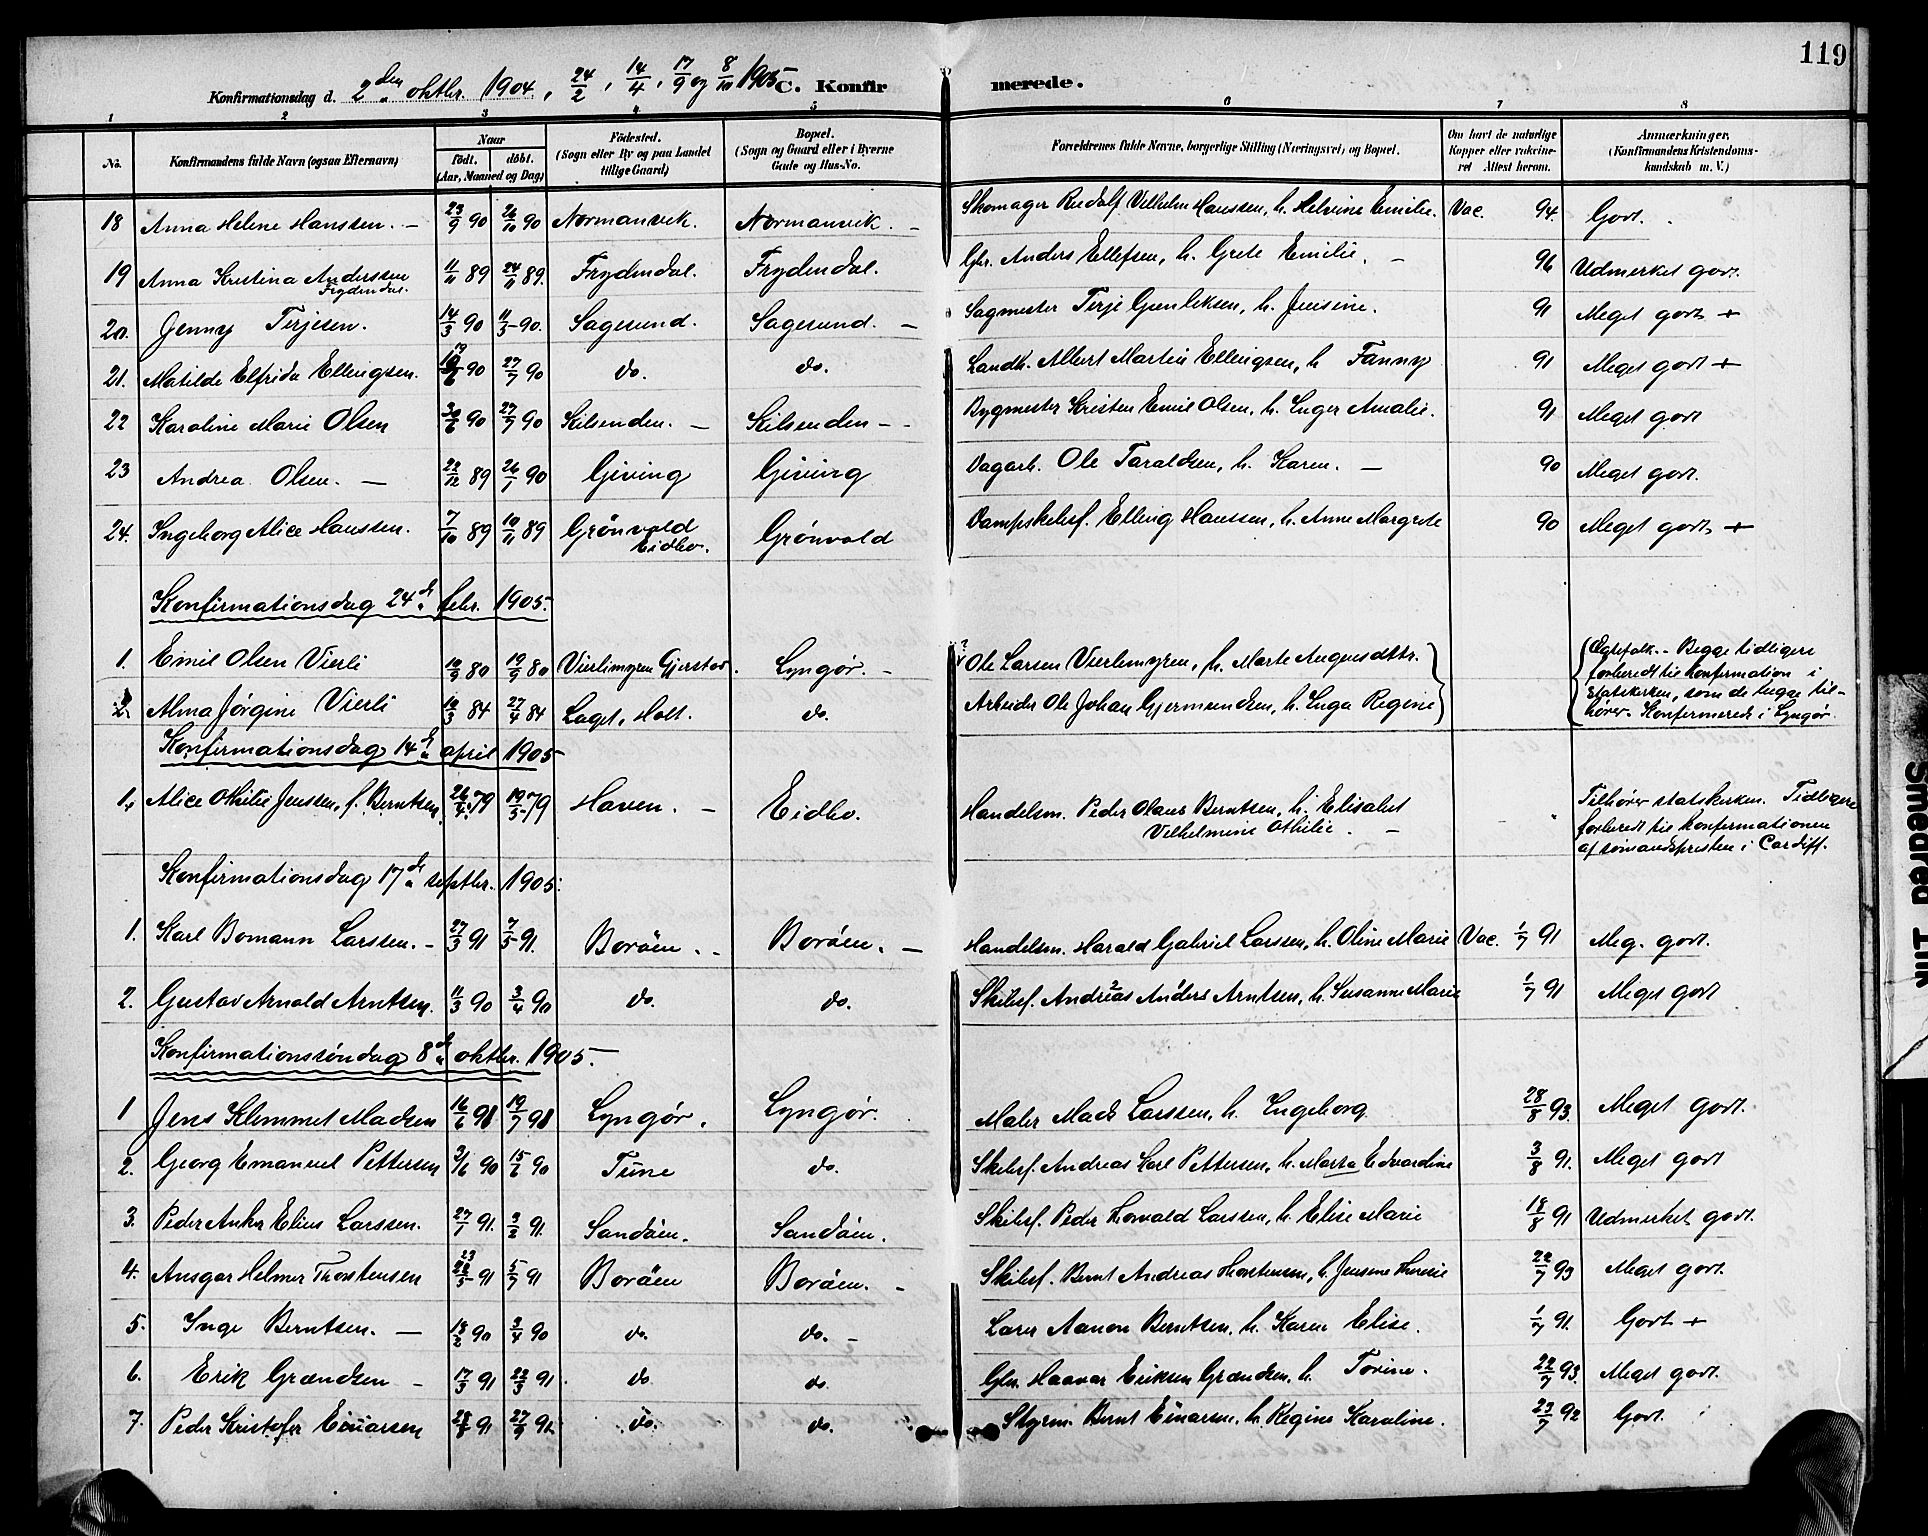 119
Konfirmationsdag d. 2den oktbr. 1904, 24/2, 14/4, 17/9 og 8/10 1905 C. Konfirmerede.
1 2 3 4 5 6 7 8
No. Konfirmandens fulde Navn (ogsaa Efternavn) Naar födt. döbt. (Aar, Maaned og Dag) Födested. (Sogn eller By og paa Landet tillige Gaard) Bopæl. (Sogn og Gaard eller i Byerne Gade og Hus-No. Forældrenes fulde Navne, borgerlige Stilling (Næringsvei) og Bopæl. Om havt de naturlige Kopper eller vakcineret Attest herom. Anmærkninger, (Konfirmandens Kristendomskundskab m. V.)
18 Anna Helene Hanssen. 23/9 90 26/10 90 Normansvik. Normansvik. Skomager Rudolf Vilhelm Hanssen, h. Helvine Emilie. Vac. 94. Godt.
19 Anna Kristina Anderssen Frydendal. 11/11 89 24/11 89. Frydendal. Frydendal. Gbr. Anders Ellefsen, h. Grete Emilie. 96 Udmerket godt.
20. Jenny Terjesen. 14/3 90 11/5 90. Sagesund. Sagesund. Sagmester Terje Gunleksen, h. Jensine. 91 Meget godt +
21. Matilde Elfrida Ellingsen. 19/6 90 27/7 90 do. do. Landh. Albert Martin Ellingsen, h. Fanny 91 Meget godt +
22 Karoline Marie Olsen 30/6 90 27/7 90 Kilsenden. Kilsenden Bygmester Kristen Emil Olsen, h. Inger Amalie. 91 Meget godt
23 Andrea Olsen. 22/12 89 26/1 90 Giving Giving Dagarb. Ole Taraldsen, h. Karen. 90 Meget godt.
24. Ingeborg Alice Hanssen. 7/10 89 10/11 89 Grönvold Eidbo. Grönvold Dampskibsf. Elling Hanssen, h. Anne Margrete 90 Meget godt +
Konfirmationsdag 24d. febr. 1905.
1. Emil Olsen Vierli 10/9 80 19/9 80 Vierlimyren Gjerstad. Lyngør. Ole Larsen Vierlimyren, h. Marte Augusdttr.
2. Alma Jörgine Vierli 10/3 84 27/4 84 Laget, Holt. do. Arbeider Ole Johan Gjermundsen, h. Inga Regine
Ægtefolk. Begge tidligere
forberedt til Konfirmation i
Statskirken, som de begge tilhører. Konfirmerede i Lyngør.
Konfirmationsdag 14d. april 1905
1. Alice Othilie Jenssen, f. Berntsen. 26/4 79 19/5 79 Haven. Eidbo. Handelsm. Peder Olaus Berntsen, h. Elisabet Vilhelmine Othilie.
Tilhører statskirken. Tidligere
forberedt til Konfirmationen
af sømandspresten i Cardiff.
Konfirmationsdag 17de septbr. 1905.
1. Karl Bomann Larssen. 27/3 91 7/5 91. Boröen. Boröen. Handelsm. Harald Gabriel Larssen, h. Oline Marie Vac. 1/7 91 Meg. godt.
2. Gustav Arnold Arntsen. 11/3 90 3/4 90 do. do. Skibsf. Andreas Anders Arntsen, h. Susanne Marie 1/7 91 Meget godt
Konfirmationssöndag 8d. oktbr. 1905.
1 Jens Klemmet Madsen 16/6 91 19/7 91 Lyngør. Lyngør. Maler Mads Larssen, h. Ingeborg 28/8 93. Meget godt.
2. Georg Emanuel Pettersen 2/6 90 15/6 90 Tune do. Skibsf. Andreas Karl Pettersen, h. Marta Edvardine 3/8 91. Meget godt
3. Peder Anker Elius Larssen. 27/1 91. 2/2 91. Sandöen. Sandöen. Skibsf. Peder Torvald Larssen, h. Elise Marie 18/8 91 Udmerket godt.
4. Ansgar Helmer Thorstensen 23/5 91 5/7 91 Boröen Boröen. Skibsf. Bernt Andreas Thorstensen, h. Jensine Therese 22/7 93 Meget godt.
5. Inge Berntsen. 18/2 90 3/4 90 do. do. Lærer Aanon Berntsen, h. Karen Elise. 1/7 91. Godt +
6. Erik Grændsen 17/3 91 22/3 91. do do. Gbr. Haavar Eriksen Grændsen, h. Torine. 22/7 93. Meget godt.
7. Peder Kristofer Einarsen 91 27/9 91 do. do. Styrm. Bernt Einarsen, h. Regine Karoline. 23/7 92 Godt.